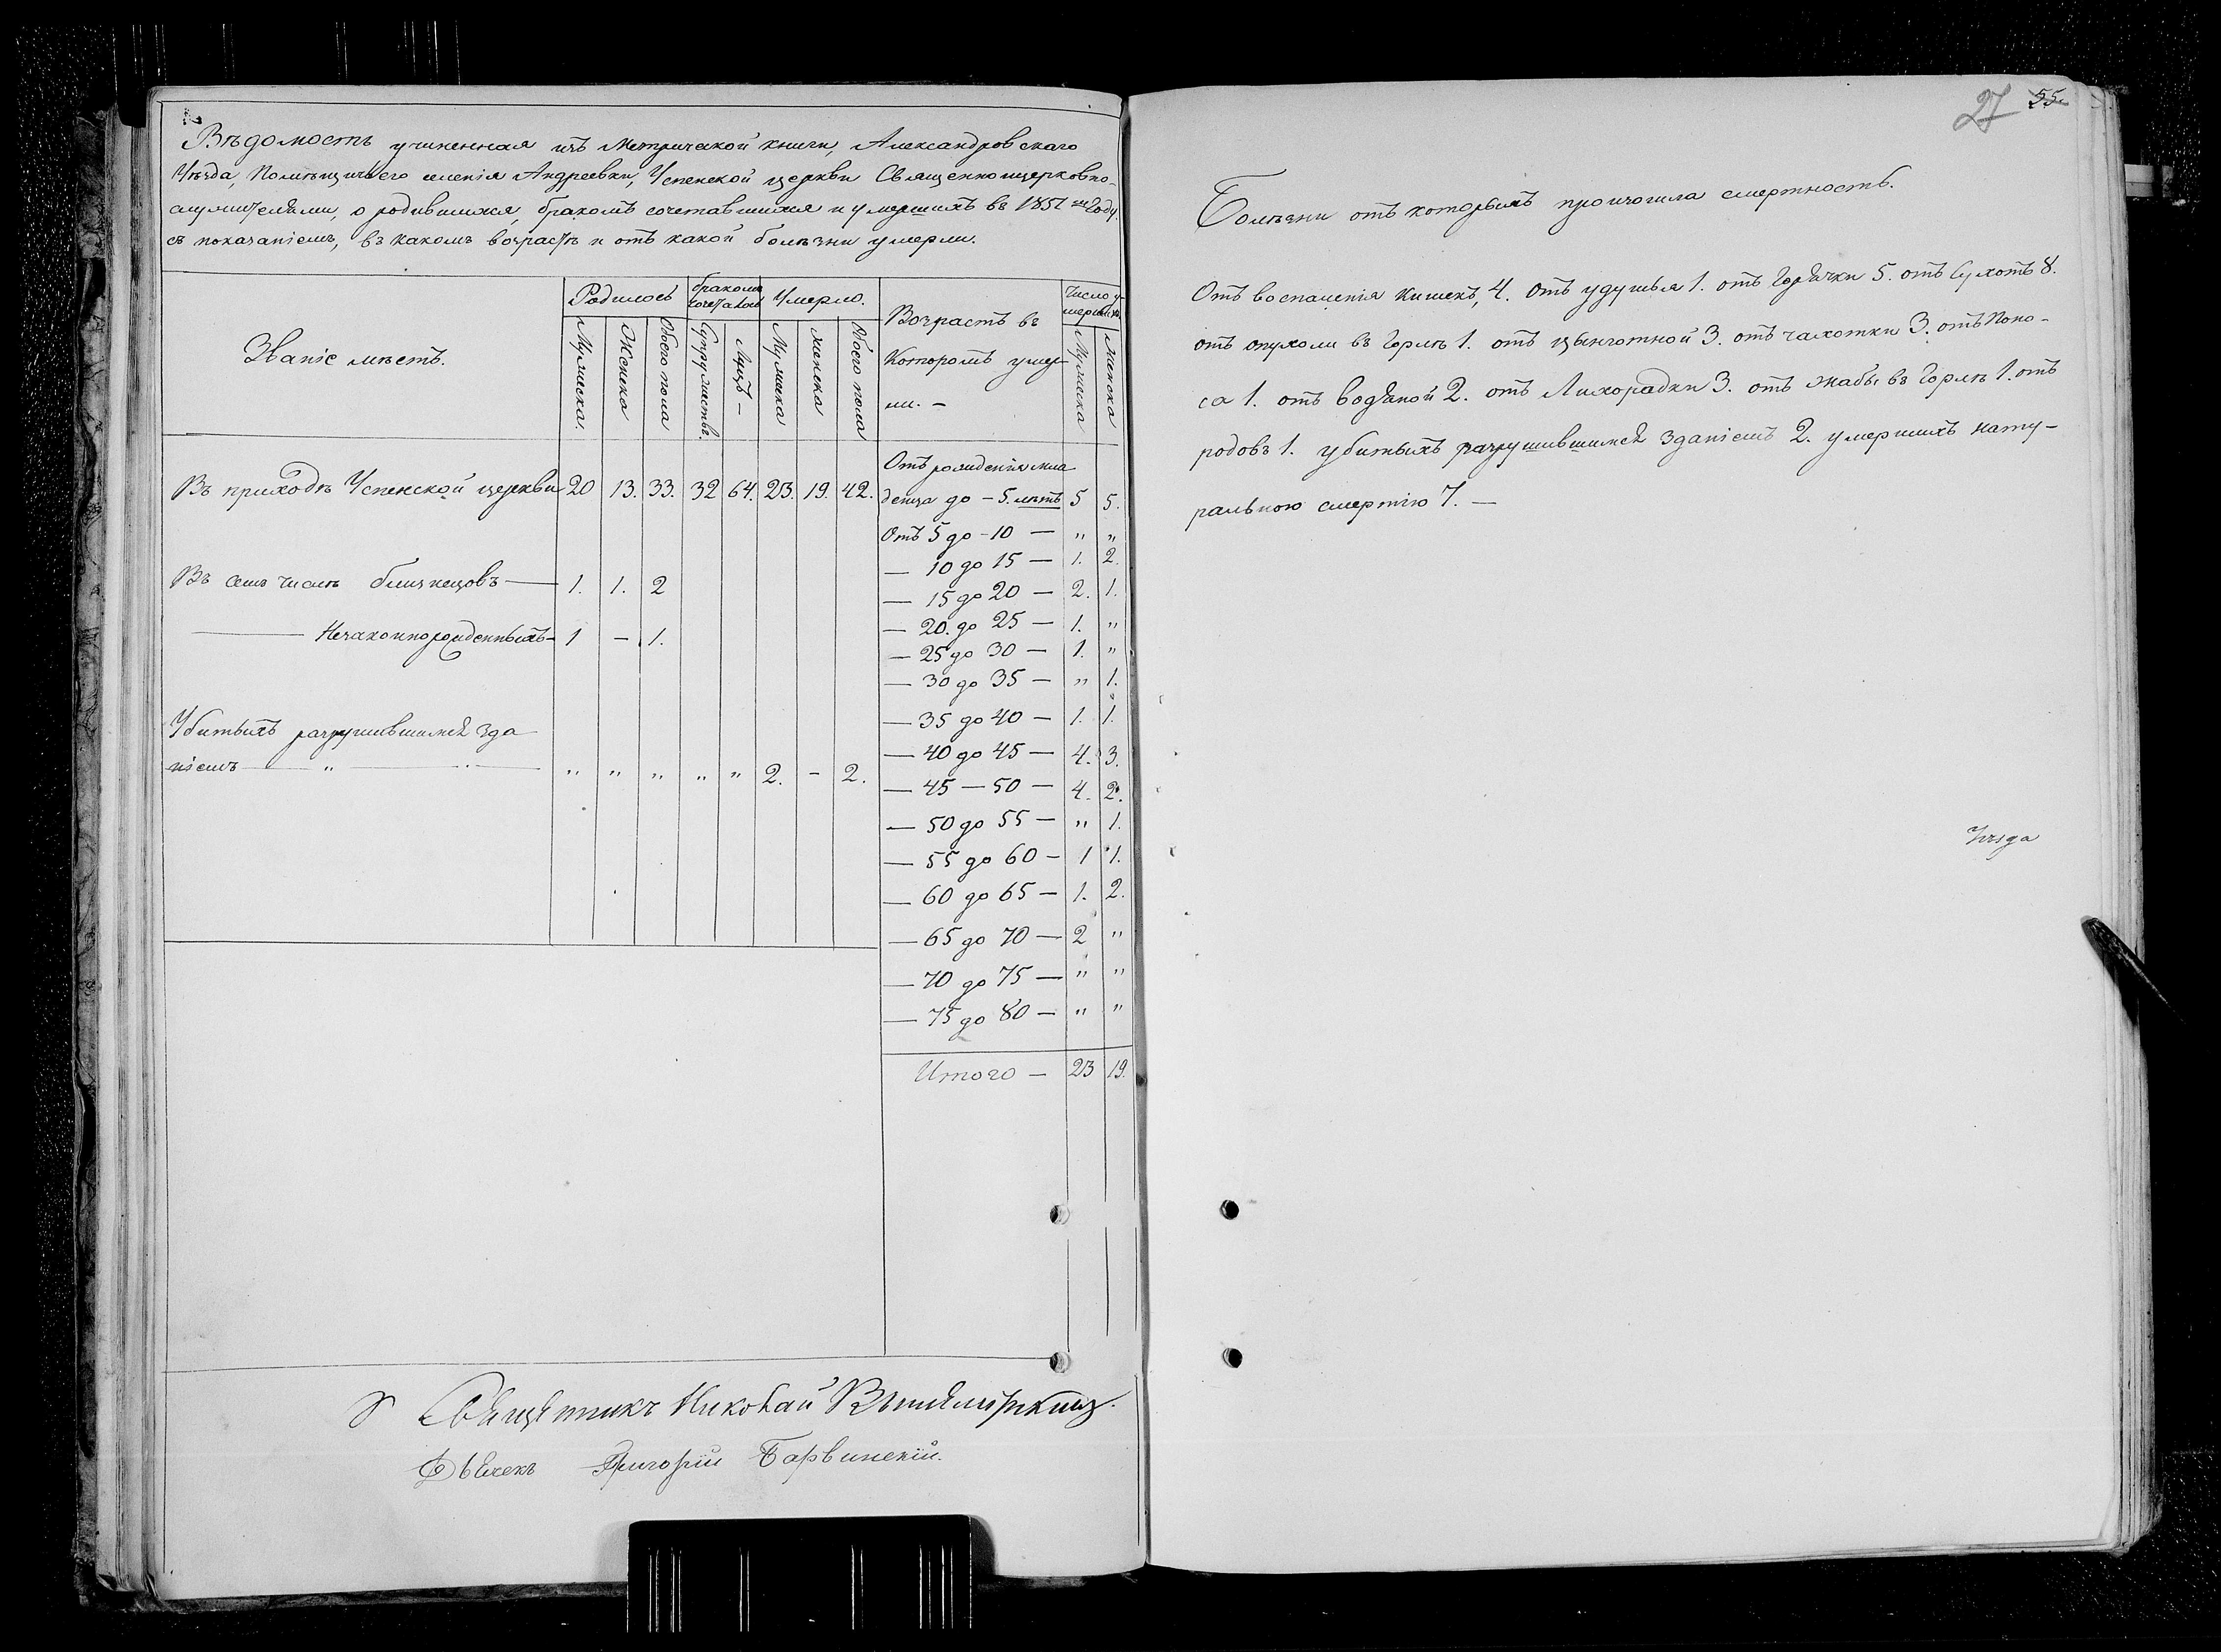 Вѣдомость учиненная изъ Метрической книги, Александровскаго
Уѣзда, Помѣщичьего селенія Андреевки, Успенской церкви Священноцерковно-
служителями, о родившихся, бракомъ сочетавшихся и умершихъ въ 1851 мъ Году.
съ показаніемъ, въ какомъ возрастѣ и отъ какой болѣзни умерли.
Званіе мѣстъ.
Родилось
Мужеска.
Женска
Обоего пола
бракомъ сочеталось
Супружествъ.
Лицъ —
Умерло.
Мужеска
женска
Обоего пола
Возрастъ въ
Которомъ умер-
ли. —
Число у-
мершихъ
Мужеска
женска
Въ приходѣ Успенской церкви 20 13. 33. 32 64. 23. 19. 42.
Въ семъ числѣ близнецовъ — 1. 1. 2
— Незаконнорожденныхъ — 1 — 1.
Убитыхъ разрушившимся зда
ніемъ — „ — „ „ „ „ „ 2. - 2.
Отъ рожденія мла
денца до — 5. лѣтъ 5 5.
Отъ 5 до - 10 — „ „
— 10 до 15 — 1. 2.
— 15 до 20 — 2. 1.
— 20. до 25 — 1. „
— 25 до 30 — 1. „
— 30 до 35 — „ 1.
— 35 до 40 — 1. 1.
— 40 до 45 — 4. 3.
— 45 — 50 — 4. 2.
— 50 до 55 — „ 1.
— 55 до 60 — 1 1.
— 60 до 65 — 1. 2.
— 65 до 70 — 2 „
— 70 до 75 — „ „
— 75 до 80 — „ „
Итого — 23 19.
Священникъ Николай
Дьячекъ Григорій Барвинскій.
27 55.
Болѣзни отъ которыхъ произошла смертность.
Отъ воспаленія Кишекъ, 4. Отъ удушья 1. отъ Горячки 5. отъ Сухотъ 8.
отъ опухоли въ Горлѣ 1. отъ цынготной 3. отъ чахотки 3. отъ Поно-
са 1. отъ водяной 2. отъ Лихорадки 3. отъ жабы въ Горлѣ 1. отъ
родовъ 1. убитыхъ разрушившимся зданіемъ 2. умершихъ нату-
ральною смертію 7. —
Уѣзда